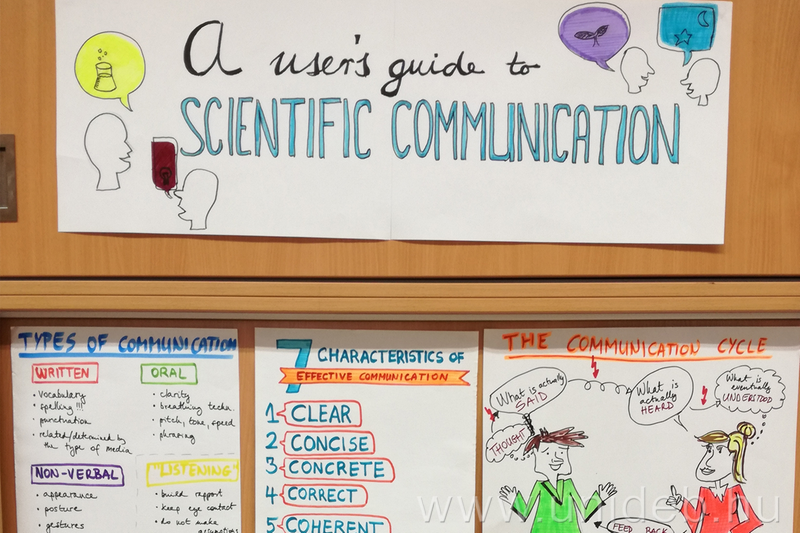 A user's guide to
SCIENTIFIC COMMUNICATION
TYPES OF COMMUNICATION
WRITTEN
• vocabulary
• spelling !!!
• punctuation
• related/determined by
the type of media
ORAL
• clarity
• breathing techn.
• pitch, tone, speed
• phrasing
NON-VERBAL
• appearance
• posture
• gestures
"LISTENING"
• build rapport
• keep eye contact
• do not make
assumptions
7 CHARACTERISTICS OF
EFFECTIVE COMMUNICATION
1 CLEAR
2 CONCISE
3 CONCRETE
4 CORRECT
5 COHERENT
THE COMMUNICATION CYCLE
What is actually
SAID
THOUGHT
What is
actually
HEARD
What is
eventually
UNDERSTOOD
FEED BACK
www.unideb.hu